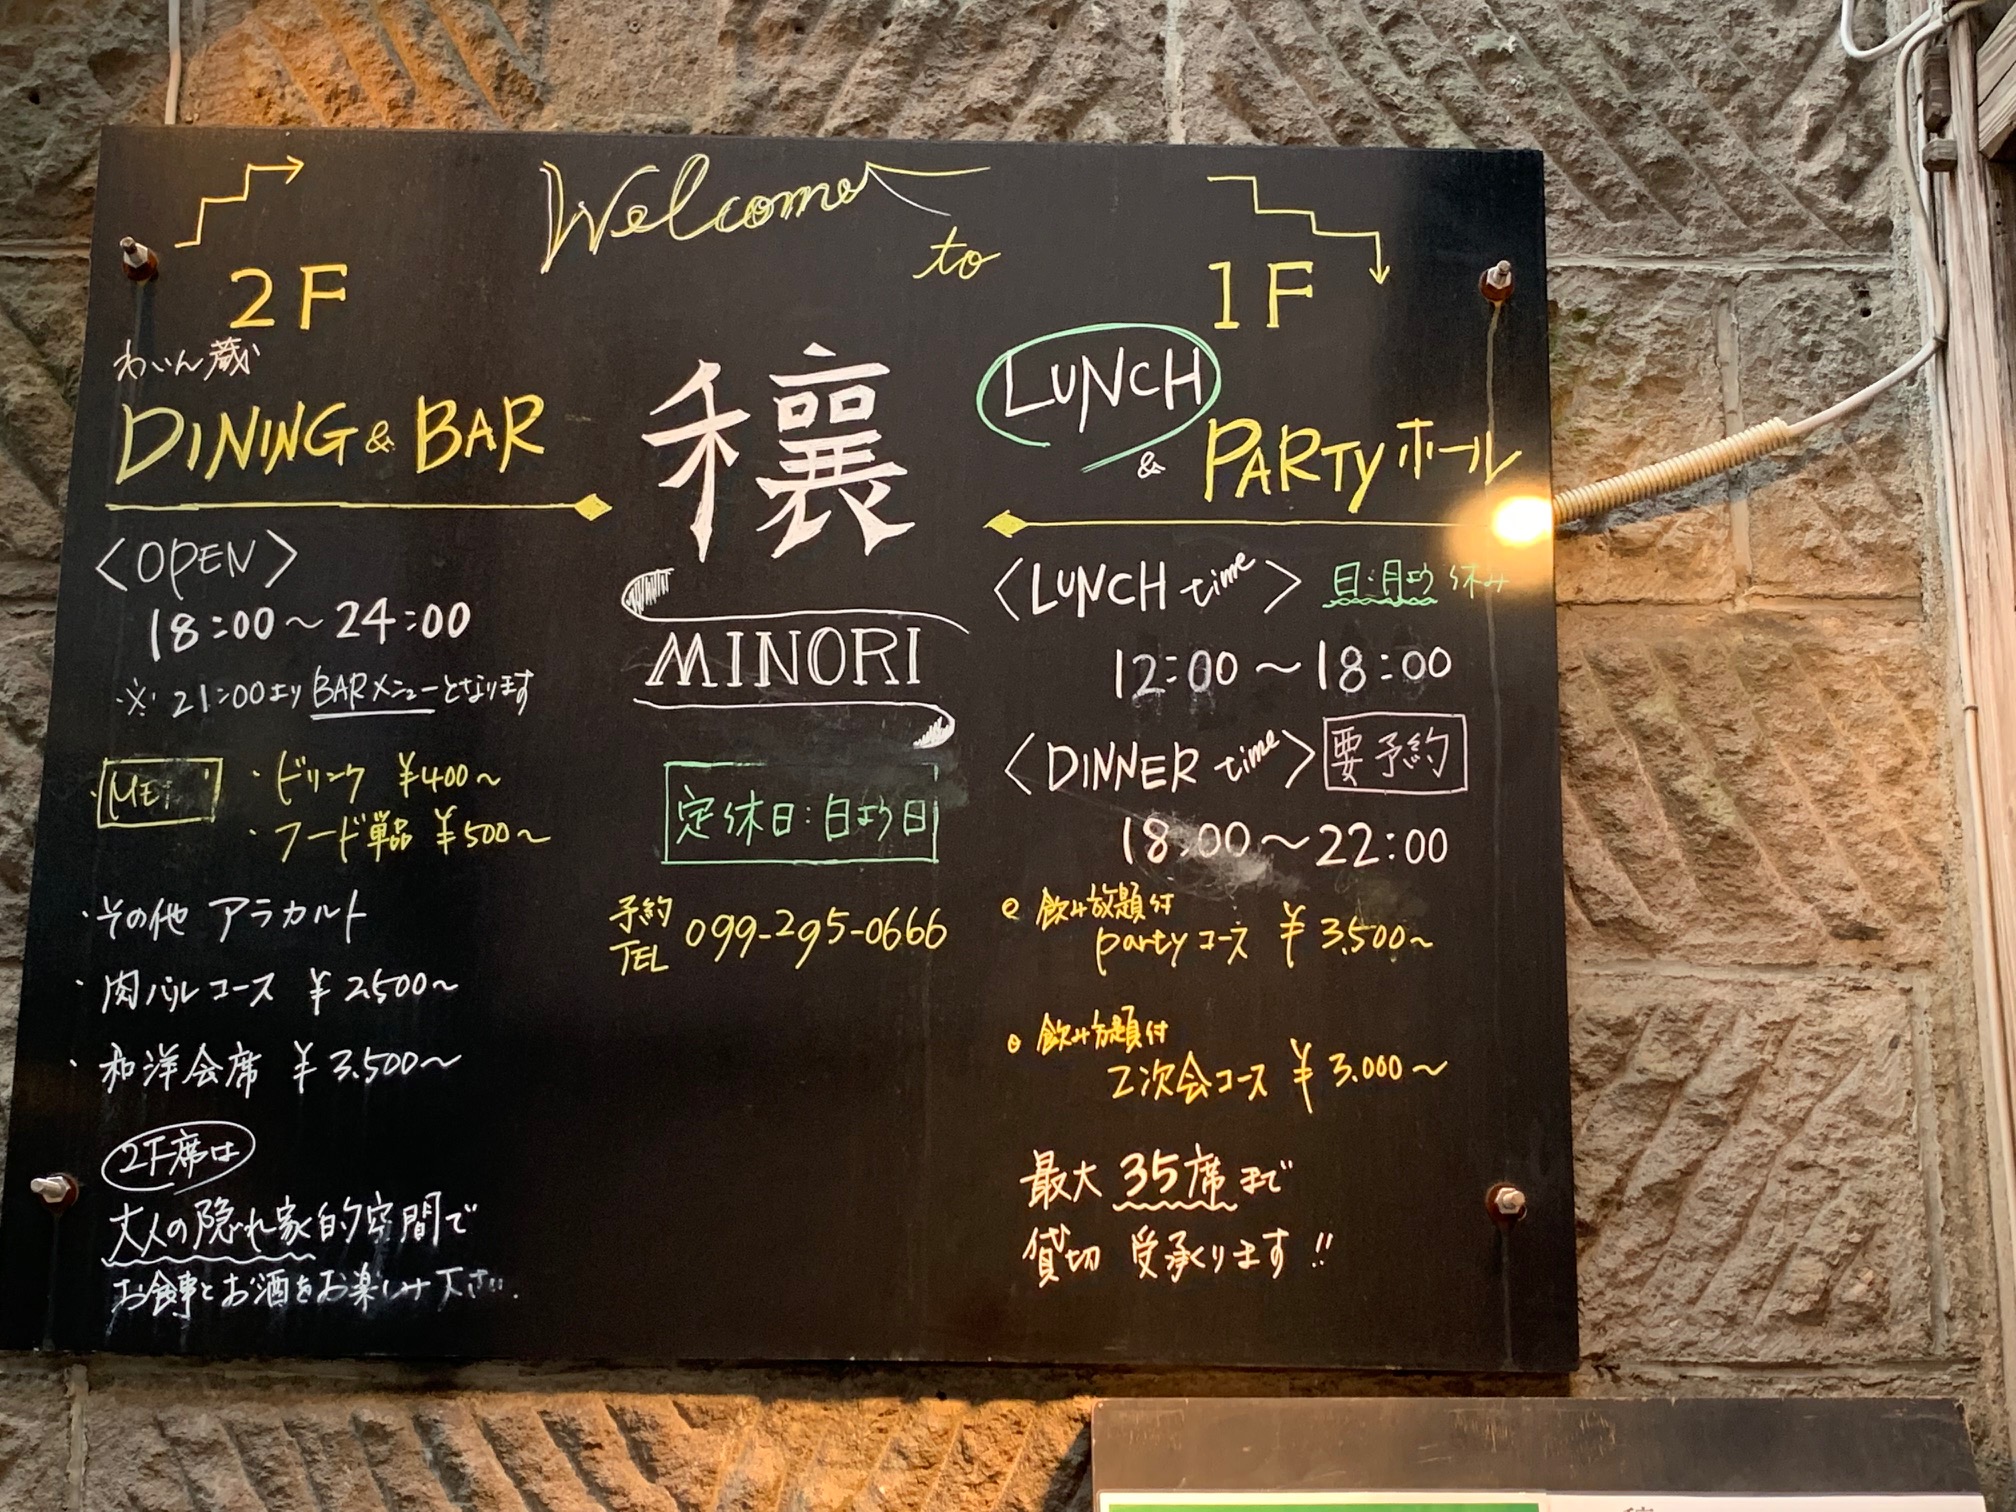 Welcome
to
2F
わいん蔵
DINING & BAR
<OPEN>
18:00～24:00
※ 21:00より BARメニューとなります
・ドリンク ¥400～
・フード単品 ¥500～
・その他 アラカルト
・肉バルコース ¥2,500～
・和洋会席 ¥3,500～
2F席は
大人の隠れ家的空間で
お食事とお酒をお楽しみ下さい.
穣
MINORI
定休日:日より日
予約
TEL 099-295-0666
1F
LUNCH
& PARTYホール
<LUNCH time> 日:月より 休み
12:00～18:00
<DINNER time> 要予約
18:00～22:00
飲み放題付
partyコース ¥3,500～
飲み放題付
2次会コース ¥3.000～
最大 35席まで
貸切 受承ります!!